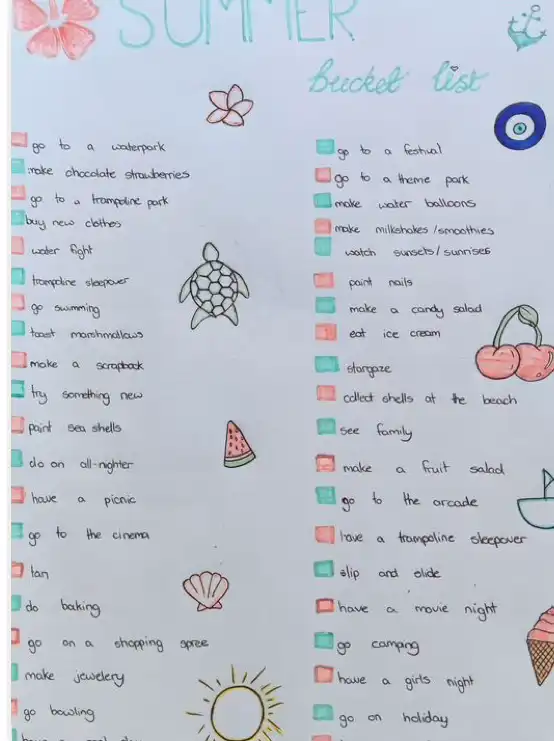 SUMMER
bucket list
go to a waterpark
make chocolate strawberries
go to a trampoline park
buy new clothes
water fight
trampoline sleepover
go swimming
toast marshmallows
make a scrapbook
try something new
paint sea shells
do an all-nighter
have a picnic
go to the cinema
tan
do baking
go on a shopping spree
make jewelery
go bowling
have a
go to a festival
go to a theme park
make water balloons
make milkshakes/smoothies
watch sunsets/sunrises
paint nails
make a candy salad
eat ice cream
stargaze
collect shells at the beach
see family
make a fruit salad
go to the arcade
have a trampoline sleepover
slip and slide
have a movie night
go camping
have a girls night
go on holiday